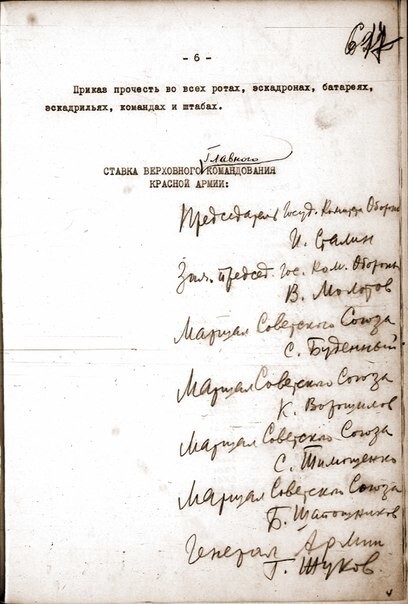 - 6 -
Приказ прочесть во всех ротах, эскадронах, батареях,
эскадрильях, командах и штабах.
Главного
СТАВКА ВЕРХОВНОГО КОМАНДОВАНИЯ
КРАСНОЙ АРМИИ:
Председатель Госуд. Комитета Обороны
И. Сталин
Зам. председ. Гос. Ком. Обороны
В. Молотов
Маршал Советского Союза
С. Буденный
Маршал Советского Союза
К. Ворошилов
Маршал Советского Союза
С. Тимошенко
Маршал Советского Союза
Б. Шапошников
Генерал Армии
Г. Жуков.